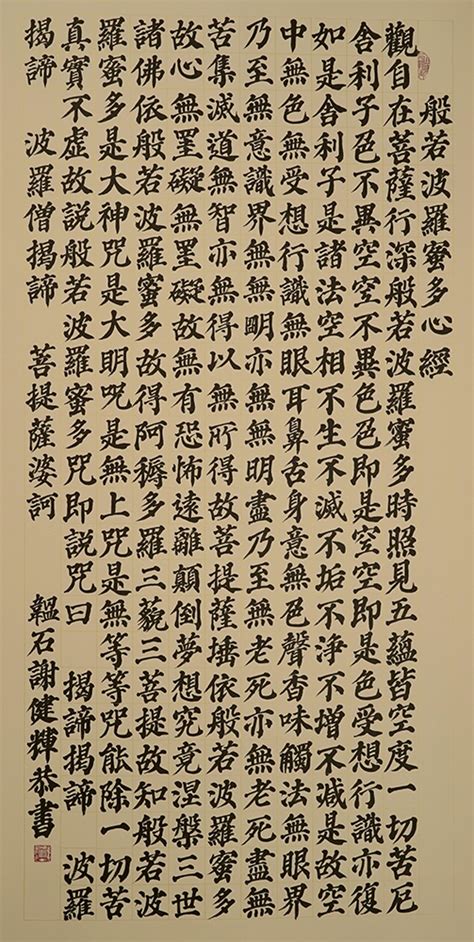 般若波羅蜜多心經
觀自在菩薩行深般若波羅蜜多時照見五蘊皆空度一切苦厄
舍利子色不異空空不異色色即是空空即是色受想行識亦復
如是舍利子是諸法空相不生不滅不垢不淨不增不減是故空
中無色無受想行識無眼耳鼻舌身意無色聲香味觸法無眼界
乃至無意識界無無朙亦無無明盡乃至無老死亦無老死盡無
苦集滅道無智亦無得以無所得故菩提薩埵依般若波羅蜜多
故心無罣礙無罣礙故無有恐怖遠離顛倒夢想究竟涅槃三世
諸佛依般若波羅蜜多故得阿耨多羅三藐三菩提故知般若波
羅蜜多是大神咒是大明呪是無上咒是無等等咒能除一切苦
真實不虛故說般若波羅蜜多咒即説咒曰 揭諦揭諦 波羅
揭諦 波羅僧揭諦 菩提薩婆訶 韞石謝健輝恭書